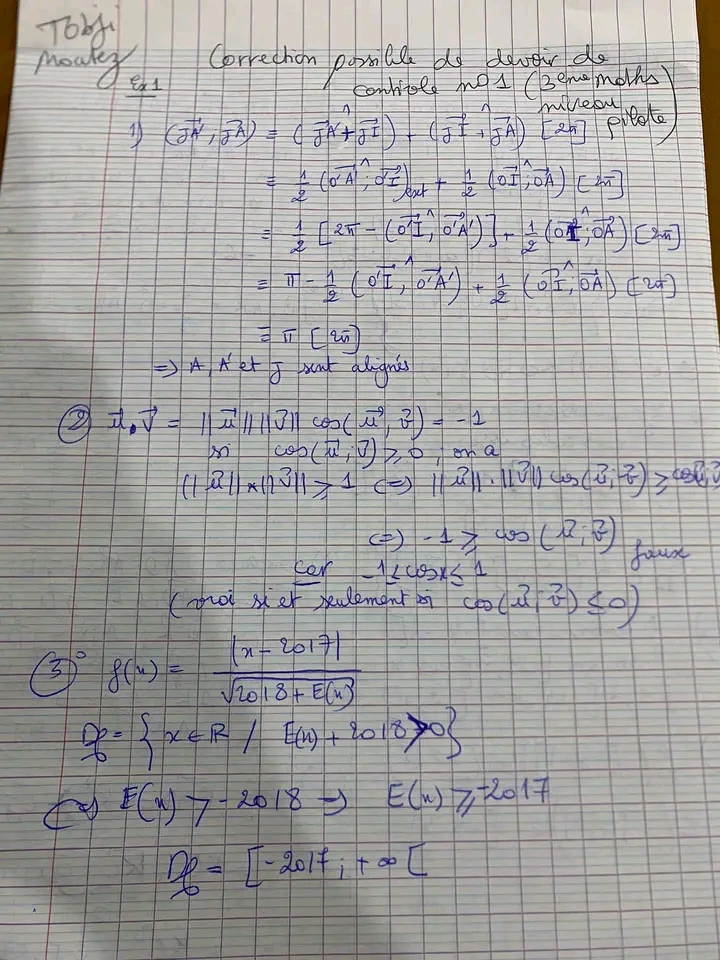 Tobji
Moatez
Correction possible de devoir de
contrôle n°1 (3ème maths
niveau
pilote)
Ex1
1) (JA', JA) ≡ (JA' + JI) + (JI + JA) [2π]
≡ 1/2 (O'A'; O'I)ext + 1/2 (OI; OA) [2π]
≡ 1/2 [2π - (O'I, O'A')] + 1/2 (OI; OA) [2π]
≡ π - 1/2 (O'I, O'A') + 1/2 (OI; OA) [2π]
≡ π [2π]
=> A, A' et J sont alignés
② u.v = ||u|| ||v|| cos(u, v) = -1
si cos(u; v) ≥ 0, on a
||u|| × ||v|| ≥ 1 <=> ||u||.||v|| cos(u; v) ≥ cos(u; v)
<=> -1 ≥ cos(u; v) faux
car -1 ≤ cosx ≤ 1
(vrai si et seulement si cos(u; v) ≤ 0)
③° f(x) = |x - 2017| / √2018 + E(x)
Df = { x ∈ ℝ / E(x) + 2018 > 0}
<=> E(x) > -2018 => E(x) ≥ -2017
Df = [-2017; +∞[